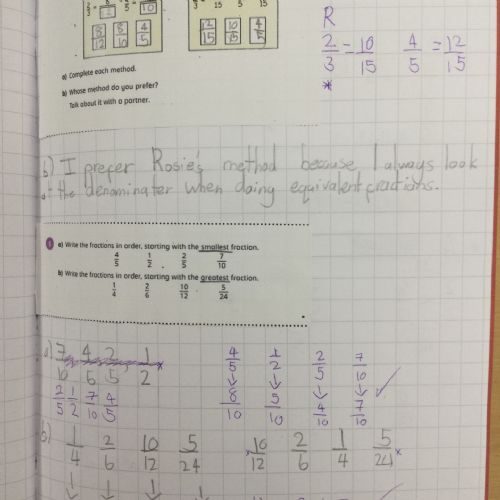 12/15 10/15 4/5
8/12 8/10 4/5
15 5 15
a) Complete each method.
b) Whose method do you prefer?
Talk about it with a partner.
R
2/3 = 10/15 4/5 = 12/15
*
b) I prefer Rosie's method because I always look
at the denominater when doing equivalent fractions.
a) Write the fractions in order, starting with the smallest fraction.
4/5 1/2 2/5 7/10
b) Write the fractions in order, starting with the greatest fraction.
1/4 2/6 10/12 5/24
a) 7/10 4/5 2/5 1/2 *
4/5 1/2 2/5 7/10
2/5 1/2 7/10 4/5
8/10 5/10 4/10 7/10 ✓
b) 1/4 2/6 10/12 5/24
*10/12 2/6 1/4 5/24 *